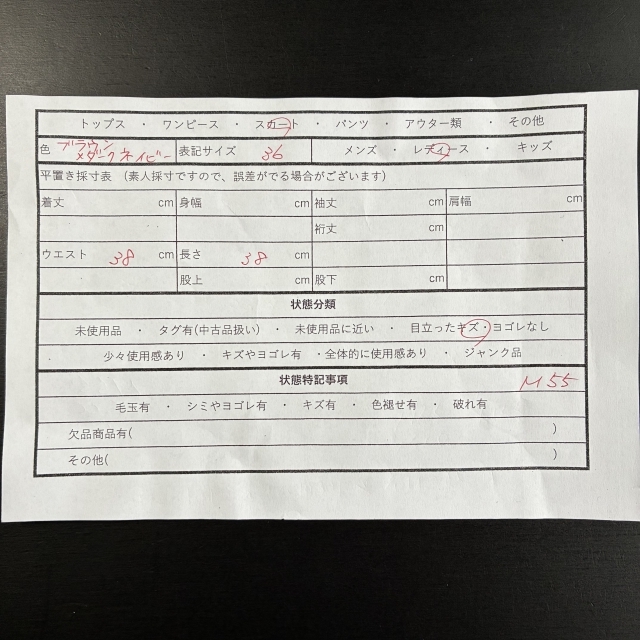 トップス ・ ワンピース ・ スカート ・ パンツ ・ アウター類 ・ その他
色 ブラウン
×ダークネイビー 表記サイズ 36 メンズ ・ レディース ・ キッズ
平置き採寸表 （素人採寸ですので、誤差がでる場合がございます）
着丈 cm 身幅 cm 袖丈 cm 肩幅 cm
裄丈 cm
ウエスト 38 cm 長さ 38 cm
股上 cm 股下 cm
状態分類
未使用品 ・ タグ有(中古品扱い) ・ 未使用品に近い ・ 目立ったキズ・ヨゴレなし
少々使用感あり ・ キズやヨゴレ有 ・全体的に使用感あり ・ ジャンク品
状態特記事項 M55
毛玉有 ・ シミやヨゴレ有 ・ キズ有 ・ 色褪せ有 ・ 破れ有
欠品商品有( )
その他( )